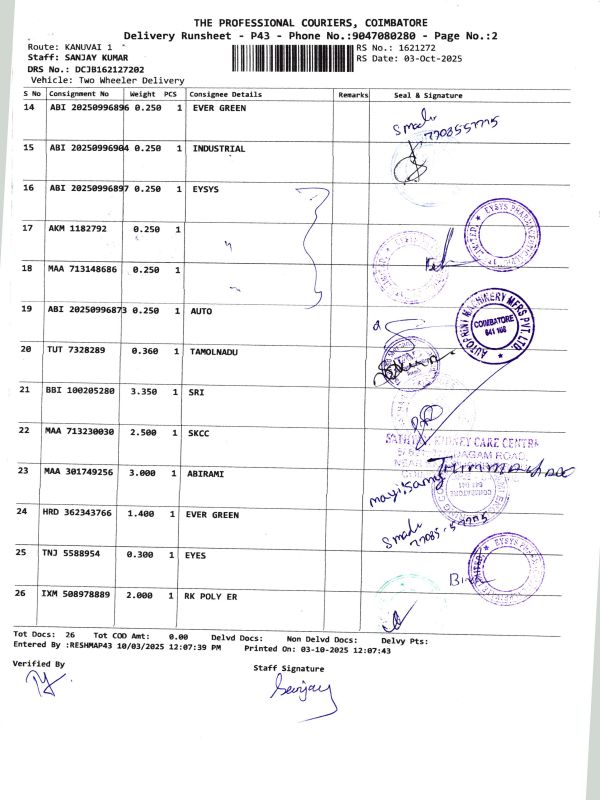 THE PROFESSIONAL COURIERS, COIMBATORE
Delivery Runsheet - P43 - Phone No.:9047080280 - Page No.:2
Route: KANUVAI 1 RS No.: 1621272
Staff: SANJAY KUMAR RS Date: 03-Oct-2025
DRS No.: DCJB162127202
Vehicle: Two Wheeler Delivery
S No Consignment No Weight PCS Consignee Details Remarks Seal & Signature
14 ABI 20250996896 0.250 1 EVER GREEN
15 ABI 20250996904 0.250 1 INDUSTRIAL
16 ABI 20250996897 0.250 1 EYSYS
17 AKM 1182792 0.250 1
18 MAA 713148686 0.250 1
19 ABI 20250996873 0.250 1 AUTO
AUTOPRINT MACHINERY MFRS PVT. LTD.
COIMBATORE
641 108
20 TUT 7328289 0.360 1 TAMOLNADU
21 BBI 100205280 3.350 1 SRI
22 MAA 713230030 2.500 1 SKCC
KIDNEY CARE CENTRE
23 MAA 301749256 3.000 1 ABIRAMI
24 HRD 362343766 1.400 1 EVER GREEN
25 TNJ 5588954 0.300 1 EYES
26 IXM 508978889 2.000 1 RK POLY ER
Tot Docs: 26 Tot COD Amt: 0.00 Delvd Docs: Non Delvd Docs: Delvy Pts:
Entered By :RESHMAP43 10/03/2025 12:07:39 PM Printed On: 03-10-2025 12:07:43
Verified By Staff Signature
Sanjay